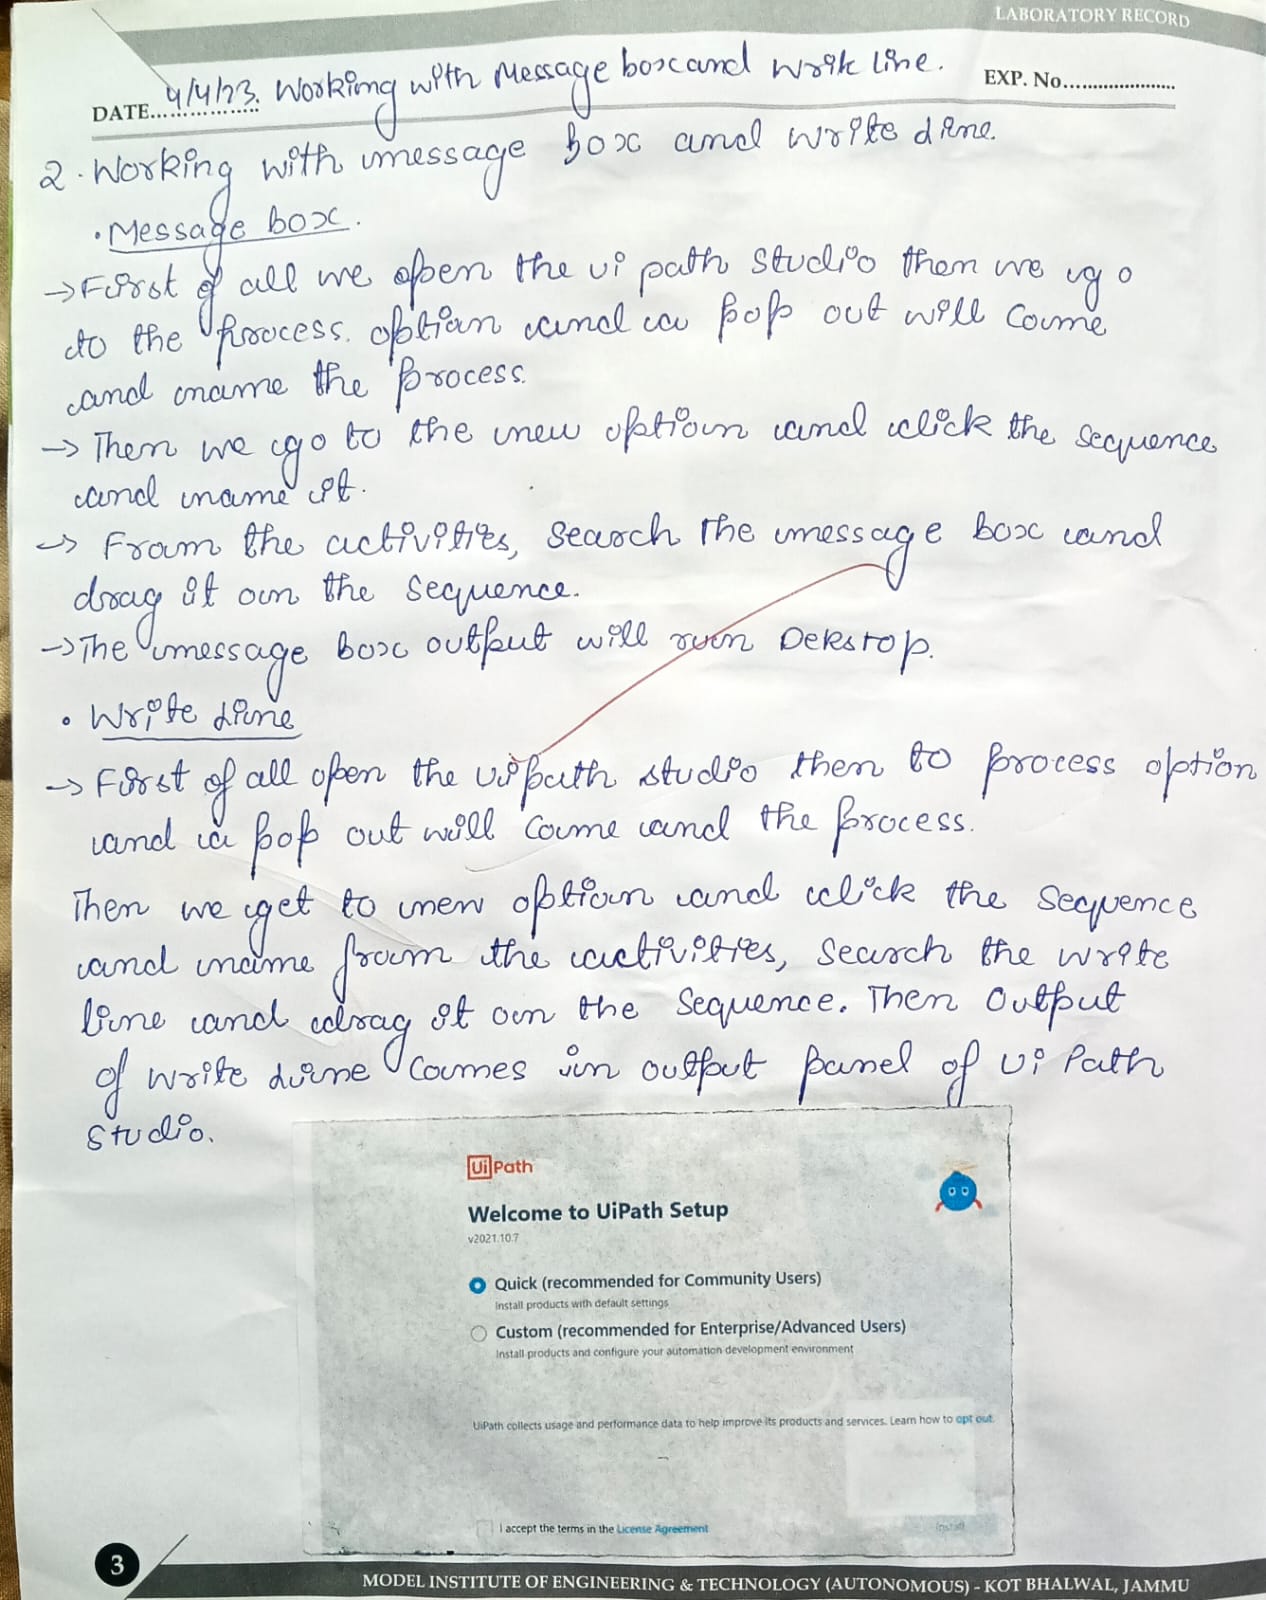 LABORATORY RECORD
DATE... 4/4/23. Working with Message box and write line. EXP. No.....................
2. Working with message box and write line.
• Message box.
→ First of all we open the ui path studio then we go
to the process. option and a pop out will come
and name the process.
→ Then we go to the new option and click the sequence
and name it.
→ From the activities, search the message box and
drag it on the sequence.
→ The message box output will run Dekstop.
• Write line
→ First of all open the uipath studio then to process option
and a pop out will come and the process.
Then we get to new option and click the sequence
and name from the activities, search the write
line and drag it on the sequence. Then output
of write line comes in output panel of Ui Path
Studio.
UiPath
Welcome to UiPath Setup
v2021.10.7
Quick (recommended for Community Users)
Install products with default settings
Custom (recommended for Enterprise/Advanced Users)
Install products and configure your automation development environment
UiPath collects usage and performance data to help improve its products and services. Learn how to opt out.
I accept the terms in the License Agreement
Install
3
MODEL INSTITUTE OF ENGINEERING & TECHNOLOGY (AUTONOMOUS) - KOT BHALWAL, JAMMU